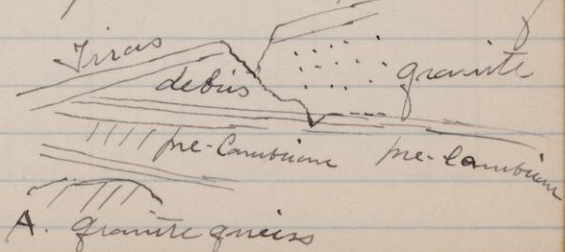 Trias
debris granite
pre-Cambrian pre-Cambrian
A. granite gneiss